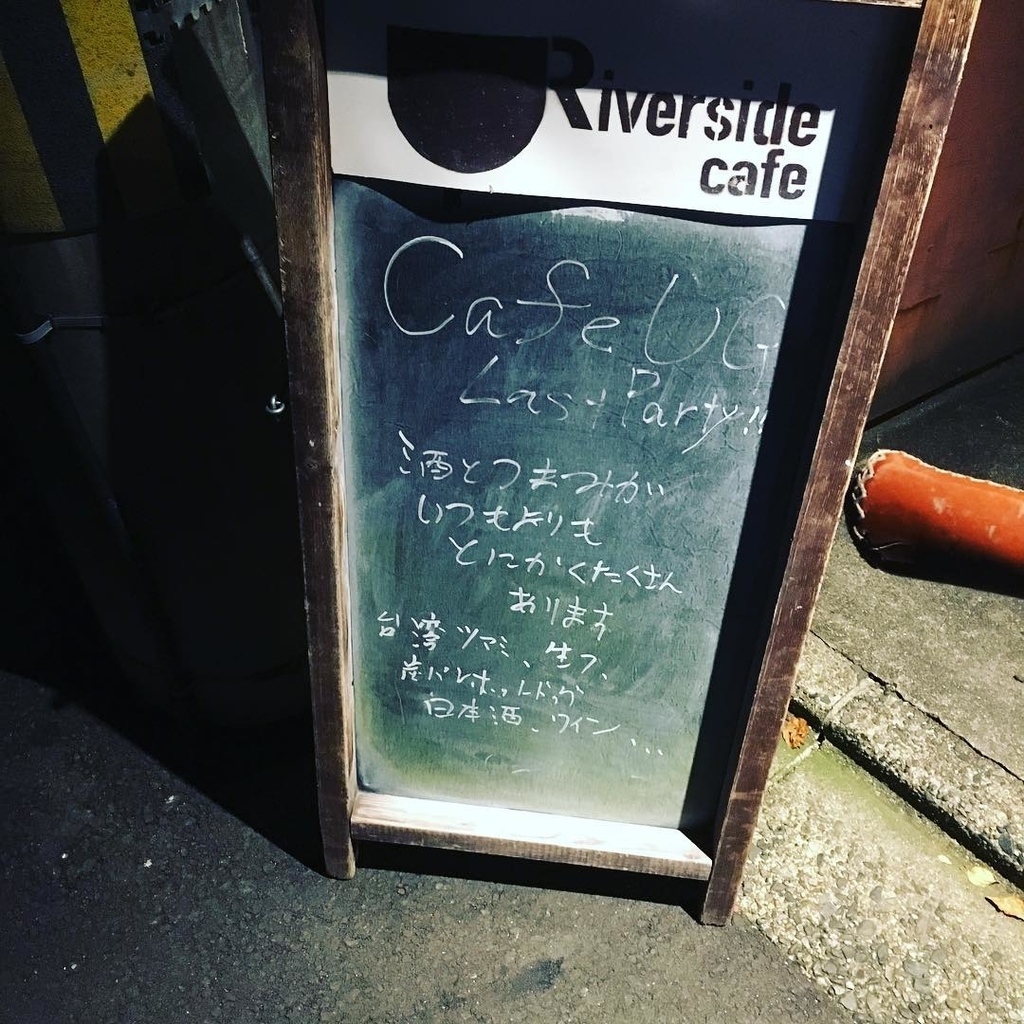 Riverside
cafe
Cafe UG
Last Party!!
酒とつまみが
いつもよりも
とにかくたくさん
あります
台湾ツマミ、生フ、
炭パンホットドッグ
日本酒、ワイン、...